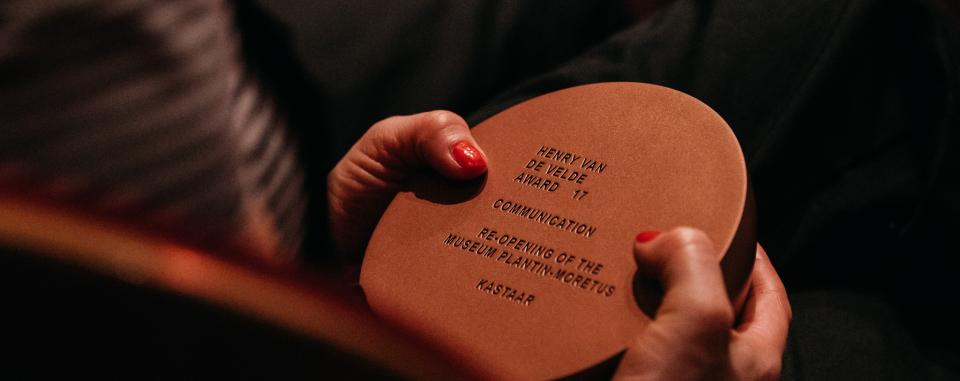 HENRY VAN
DE VELDE
AWARD 17
COMMUNICATION
RE-OPENING OF THE
MUSEUM PLANTIN-MORETUS
KASTAAR